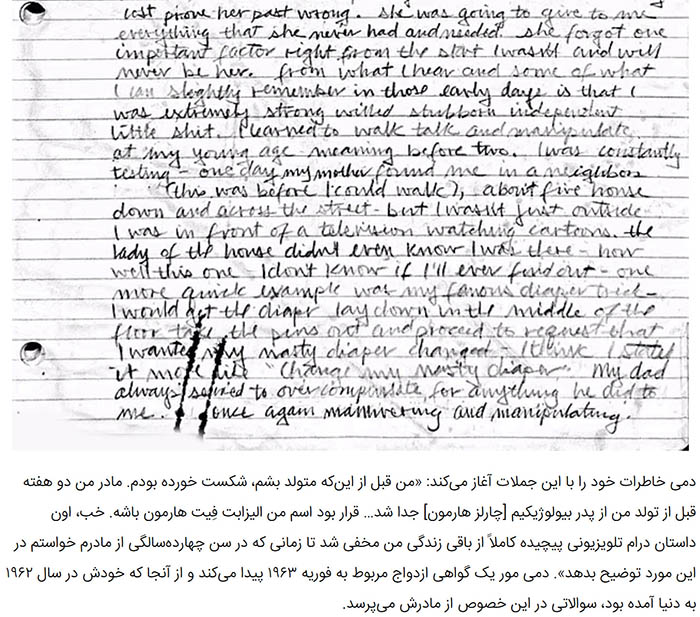 cost prove her past wrong. She was going to give to me
everything that she never had and needed. She forgot one
important factor right from the start I wasn't and will
never be her. from what I hear and some of what
I can slightly remember in those early days is that I
was extremely strong willed stubborn independent
little shit. I learned to walk talk and manipulate
at my young age meaning before two. I was constantly
testing - one day my mother found me in a neighbors
(this was before I could walk), about five house
down and across the street - but I wasn't just outside
I was in front of a television watching cartoons. the
lady of the house didn't even know I was there - how
well this one I dont know if I'll ever find out - one
more quick example was my famous diaper trick -
I would get the diaper lay down in the middle of the
floor take the pins out and proceed to request that
I wanted my nasty diaper changed - I think I stated
it more like "Change my nasty diaper". My dad
always seemed to over compensate for anything he did to
me. once again manuvering and manipulating.
دمی خاطرات خود را با این جملات آغاز می‌کند: «من قبل از این‌که متولد بشم، شکست خورده بودم. مادر من دو هفته
قبل از تولد من از پدر بیولوژیکیم [چارلز هارمون] جدا شد... قرار بود اسم من الیزابت فِیت هارمون باشه. خب، اون
داستان درام تلویزیونی پیچیده کاملاً از باقی زندگی من مخفی شد تا زمانی که در سن چهارده‌سالگی از مادرم خواستم در
این مورد توضیح بدهد». دمی مور یک گواهی ازدواج مربوط به فوریه ۱۹۶۳ پیدا می‌کند و از آنجا که خودش در سال ۱۹۶۲
به دنیا آمده بود، سوالاتی در این خصوص از مادرش می‌پرسد.